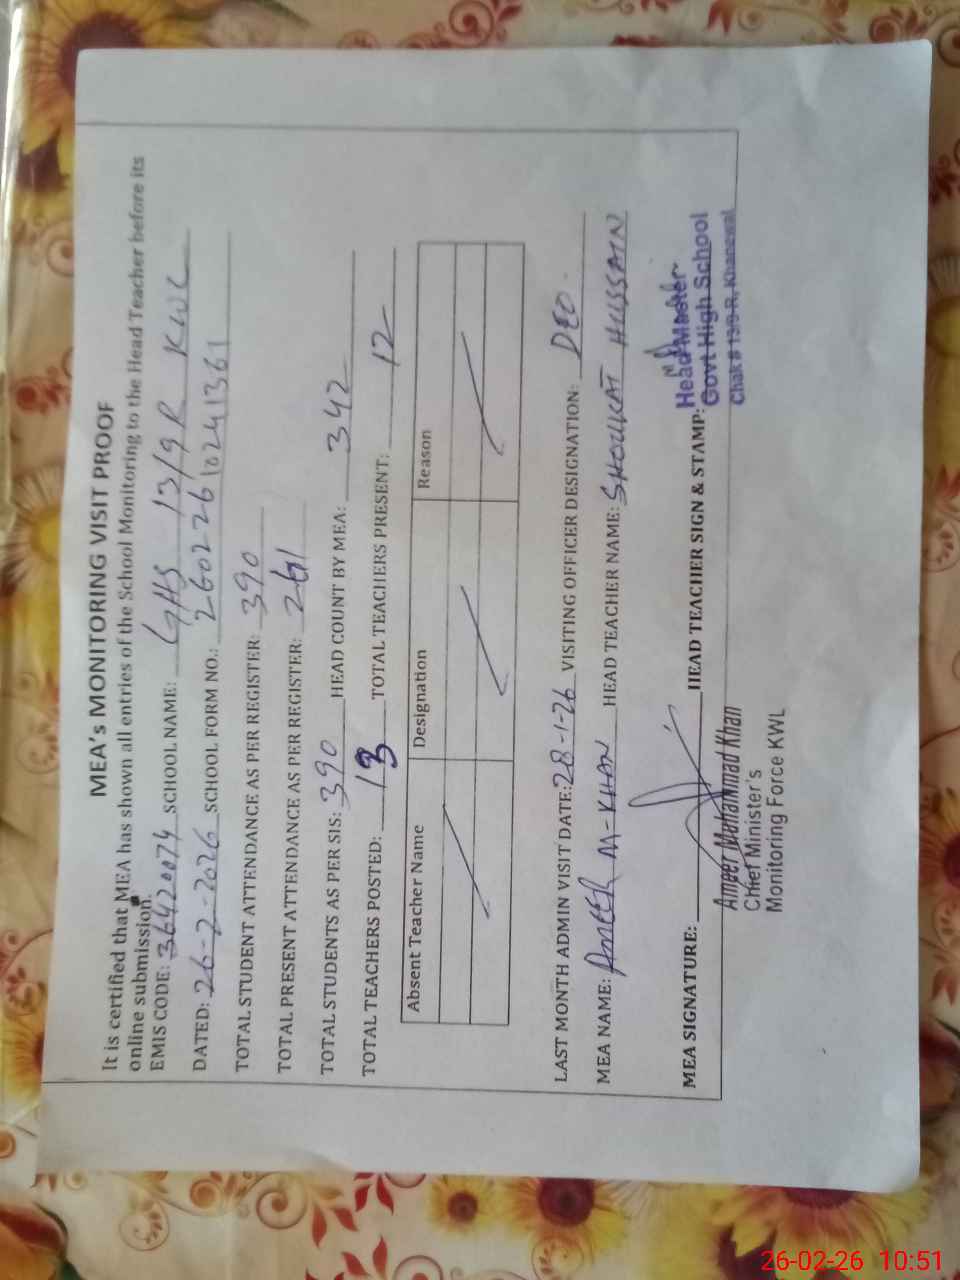 MEA's MONITORING VISIT PROOF
It is certified that MEA has shown all entries of the School Monitoring to the Head Teacher before its
online submission.
EMIS CODE: 36420074 SCHOOL NAME: GHS 13/9R KWL
DATED: 26-2-2026 SCHOOL FORM NO.: 26022610241361
TOTAL STUDENT ATTEENDANCE AS PER REGISTER: 390
TOTAL PRESENT ATTENDANCE AS PER REGISTER: 261
TOTAL STUDENTS AS PER SIS: 390 HEAD COUNT BY MEA: 342
TOTAL TEACHERS POSTED: 13 TOTAL TEACHERS PRESENT: 12
Absent Teacher Name Designation Reason
LAST MONTH ADMIN VISIT DATE: 28-1-26 VISITING OFFICER DESIGNATION: DEO
MEA NAME: AMEER M-KHAN HEAD TEACHER NAME: SHOUKAT HUSSAIN
MEA SIGNATURE: HEAD TEACHER SIGN & STAMP:
Head Master
Govt High School
Chak # 13/9-R, Khanewal
Ameer Muhammad Khan
Chief Minister's
Monitoring Force KWL
26-02-26 10:51